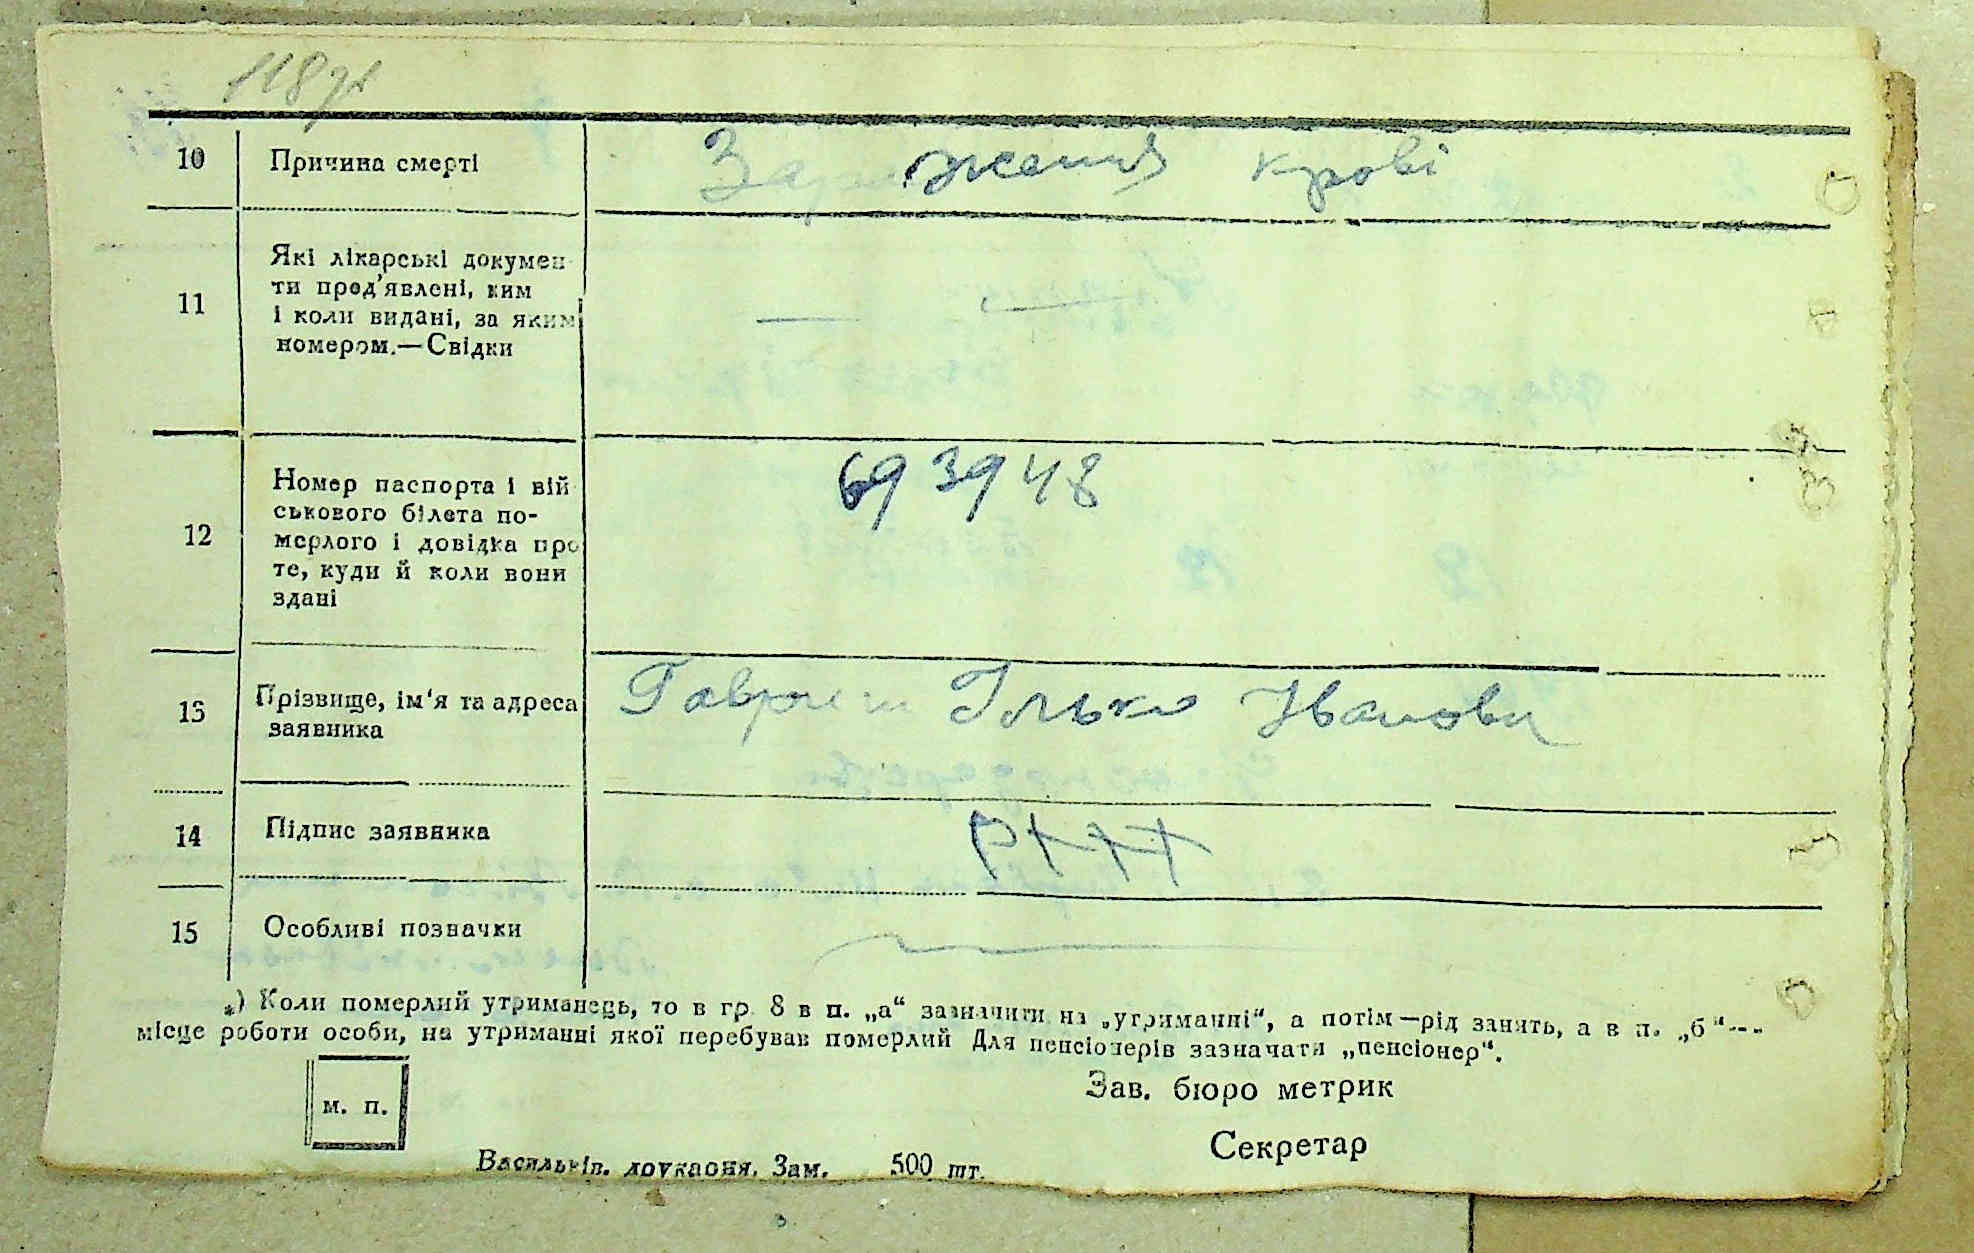 118
10 Причина смерті Зараження крові
11 Які лікарські докумен
ти пред'явлені, ким
і коли видані, за яким
номером.—Свідки — —
12 Номер паспорта і вій
ськового білета по-
мерлого і довідка про
те, куди й коли вони
здані 693948
13 Прізвище, ім'я та адреса
заявника Ілько Іванович
14 Підпис заявника
15 Особливі позначки
*) Коли померлий утриманець, то в гр. 8 в п. „а“ зазначити на „утриманні“, а потім—рід занять, а в п. „б“---
місце роботи особи, на утриманні якої перебував померлий Для пенсіонерів зазначати „пенсіонер“.
м. п.
Зав. бюро метрик
Секретар
Васильків. друкарня. Зам. 500 шт.